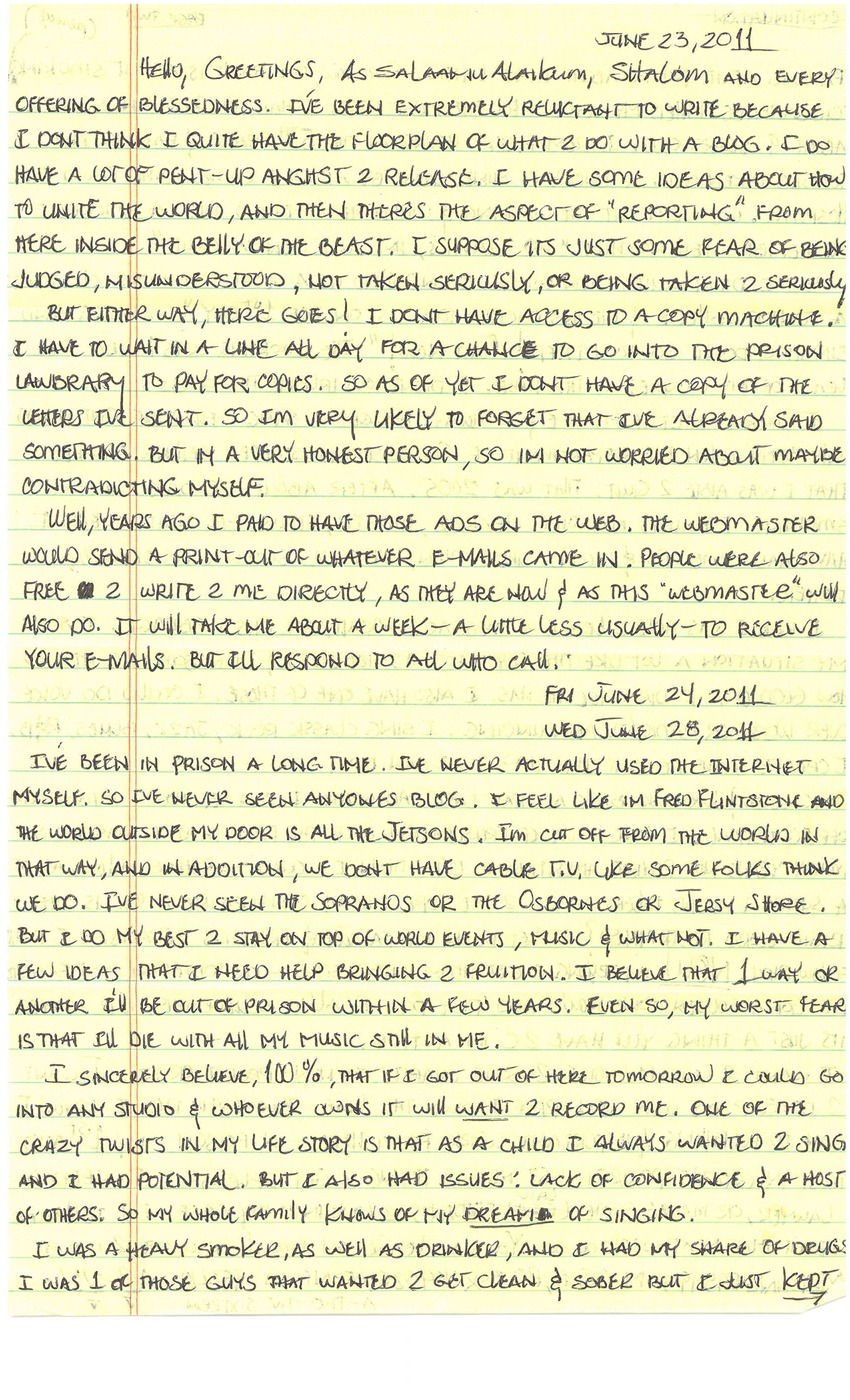 JUNE 23, 2011
Hello, GREETINGS, AS SALAAMU ALAIKUM, SHALOM AND EVERY
OFFERING OF BLESSEDNESS. I'VE BEEN EXTREMELY RELUCTANT TO WRITE BECAUSE
I DONT THINK I QUITE HAVE THE FLOORPLAN OF WHAT 2 DO WITH A BLOG. I DO
HAVE A LOT OF PENT-UP ANGHST 2 RELEASE. I HAVE SOME IDEAS ABOUT HOW
TO UNITE THE WORLD, AND THEN THERES THE ASPECT OF "REPORTING" FROM
HERE INSIDE THE BELLY OF THE BEAST. I SUPPOSE ITS JUST SOME FEAR OF BEING
JUDGED, MISUNDERSTOOD, NOT TAKEN SERIOUSLY, OR BEING TAKEN 2 SERIOUSLY
BUT EITHER WAY, HERE GOES! I DONT HAVE ACCESS TO A COPY MACHINE.
I HAVE TO WAIT IN A LINE ALL DAY FOR A CHANCE TO GO INTO THE PRISON
LAWBRARY TO PAY FOR COPIES. SO AS OF YET I DONT HAVE A COPY OF THE
LETTERS I'VE SENT. SO IM VERY LIKELY TO FORGET THAT IVE ALREADY SAID
SOMETHING. BUT IM A VERY HONEST PERSON, SO IM NOT WORRIED ABOUT MAYBE
CONTRADICTING MYSELF.
WEll, YEARS AGO I PAID TO HAVE THOSE ADS ON THE WEB. THE WEBMASTER
WOULD SEND A PRINT-OUT OF WHATEVER E-MAILS CAME IN. PEOPLE WERE ALSO
FREE 2 WRITE 2 ME DIRECTLY, AS THEY ARE NOW & AS THIS "WEBMASTER" WIll
ALSO DO. IT WIll TAKE ME ABOUT A WEEK - A LITTLE LESS USUAlly - TO RECEIVE
YOUR E-MAILS. BUT Ill RESPOND TO All WHO CAll.
FRI JUNE 24, 2011
WED JUNE 28, 2011
I'VE BEEN IN PRISON A LONG TIME. IVE NEVER ACTUALLY USED THE INTERNET
MYSELF. SO IVE NEVER SEEN ANYONES BLOG. I FEEL LIKE IM FRED FLINTSTONE AND
THE WORLD OUTSIDE MY DOOR IS ALL THE JETSONS. Im CUT OFF FROM THE WORLD IN
THAT WAY, AND IN ADDITION, WE DONT HAVE CABLE T.V. LIKE SOME FOLKS THINK
WE DO. I'VE NEVER SEEN THE SOPRANOS OR THE OSBORNES OR JERSY SHORE.
BUT I DO MY BEST 2 STAY ON TOP OF WORLD EVENTS, MUSIC & WHAT NOT. I HAVE A
FEW IDEAS THAT I NEED HELP BRINGING 2 FRUITION. I BELIEVE THAT 1 WAY OR
ANOTHER I'll BE OUT OF PRISON WITHIN A FEW YEARS. EVEN SO, MY WORST FEAR
IS THAT Ill DIE WITH All MY MUSIC STIll IN ME.
I SINCERELY BELIEVE, 100%, THAT IF I GOT OUT OF HERE TOMORROW I COULD GO
INTO ANY STUDIO & WHOEVER OWNS IT WIll WANT 2 RECORD ME. ONE OF THE
CRAZY TWISTS IN MY LIFE STORY IS THAT AS A CHILD I ALWAYS WANTED 2 SING
AND I HAD POTENTIAL. BUT I ALSO HAD ISSUES: LACK OF CONFIDENCE & A HOST
OF OTHERS. SO MY WHOLE FAMILY KNOWS OF MY DREAM OF SINGING.
I WAS A HEAVY SMOKER, AS WEll AS DRINKER, AND I HAD MY SHARE OF DRUGS
I WAS 1 OF THOSE GUYS THAT WANTED 2 GET CLEAN & SOBER BUT I JUST KEPT